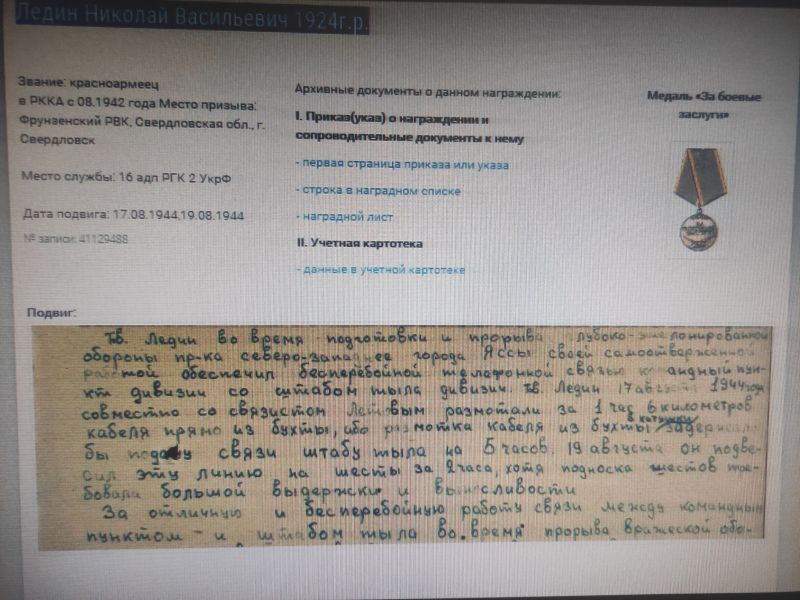 Ледин Николай Васильевич 1924г.р.
Звание: красноармеец
в РККА с 08.1942 года Место призыва:
Фрунзенский РВК, Свердловская обл., г.
Свердловск
Место службы: 16 адп РГК 2 УкрФ
Дата подвига: 17.08.1944,19.08.1944
№ записи: 41129488
Архивные документы о данном награждении:
I. Приказ(указ) о награждении и
сопроводительные документы к нему
- первая страница приказа или указа
- строка в наградном списке
- наградной лист
II. Учетная картотека
- данные в учетной картотеке
Медаль «За боевые
заслуги»
Подвиг:
Тв. Ледин во время подготовки и прорыва глубоко-эшелонированной
обороны пр-ка северо-западнее города Яссы своей самоотверженной
работой обеспечил бесперебойной телефонной связью командный пун-
кт дивизии со штабом тыла дивизии. Тв. Ледин 17 августа 1944 года
совместно со связистом размотали за 1 час 6 километров
кабеля прямо из бухты, ибо размотка кабеля из бухты в катушки задержала
бы подачу связи штабу тыла на 5 часов. 19 августа он подве-
сил эту линию на шесты за 2 часа, хотя подноска шестов тре-
бовала большой выдержки и выносливости
За отличную и бесперебойную работу связи между командным
пунктом и штабом тыла во время прорыва вражеской обо-